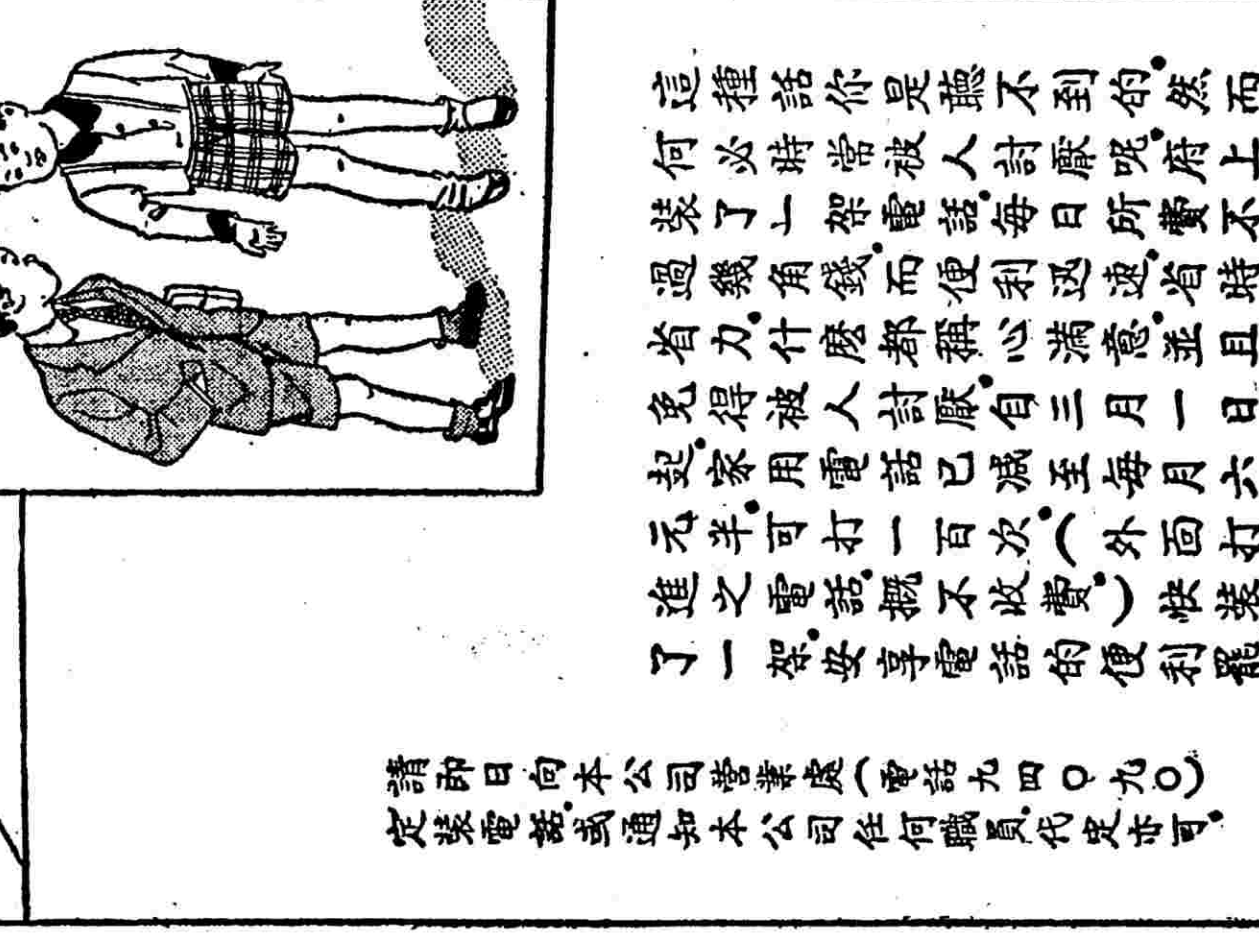 這種話你是聽不到的。然而
何必時常被人討厭呢。府上
裝了一架電話。每日所費不
過幾角錢。而便利迅速。省時
省力。什麽都稱心滿意。並且
免得被人討厭。自三月一日
起。家用電話已減至每月六
元半。可打一百次。（外面打
進之電話。概不收費。）快裝
了一架。安享電話的便利罷
請即日向本公司營業處（電話九四〇九〇）
定裝電話。或通知本公司任何職員。代定亦可。